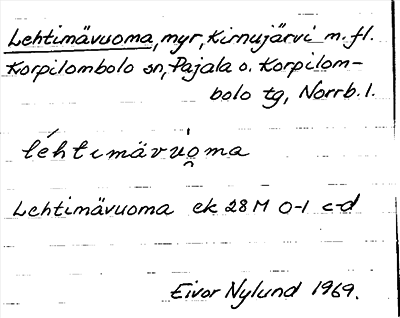 Lehtimävuoma, myr, Kirnujärvi m. fl.
Korpilombolo sn, Pajala o. Korpilom-
bolo tg, Norrb. l.
léhtimävu̯òma
Lehtimävuoma ek 28 M 0-1 c-d
Eivor Nylund 1969.